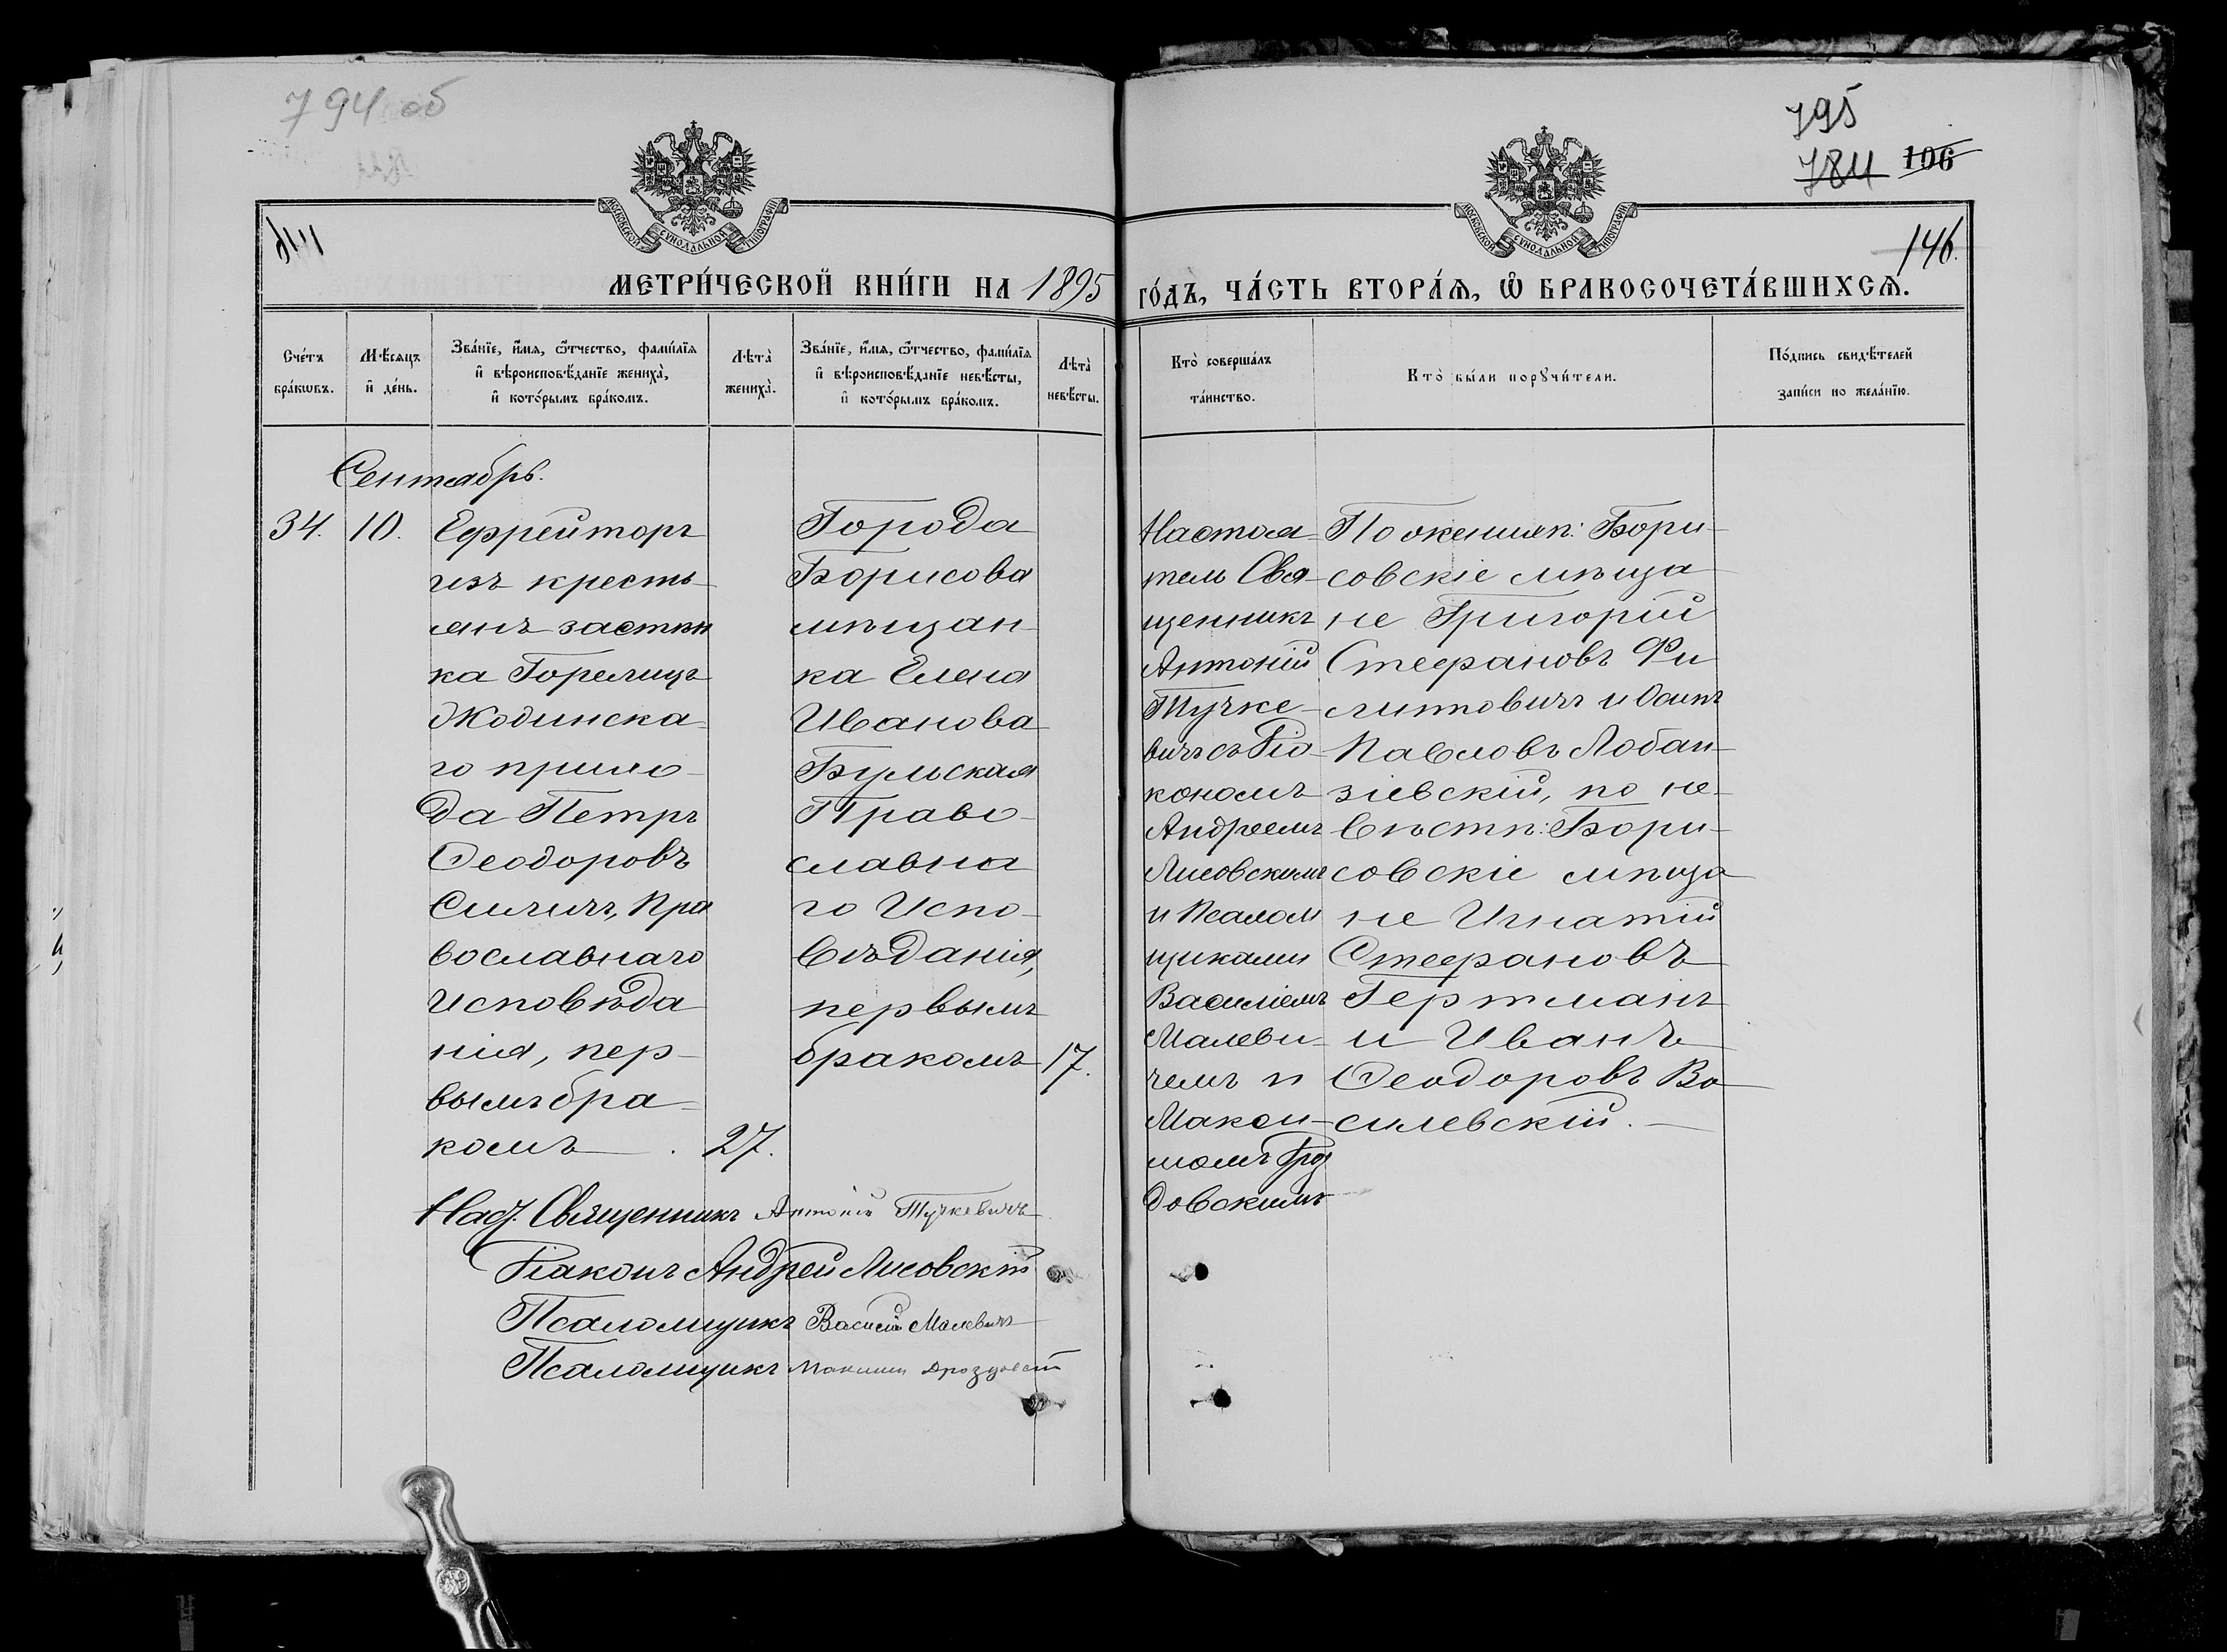 794 об
795
784 106
МОСКОВСКОЙ СѴНОДАЛЬНОЙ ТИПОГРАФІИ
МОСКОВСКОЙ СѴНОДАЛЬНОЙ ТИПОГРАФІИ
146.
МЕТРИ́ЧЕСКОЙ КНИ́ГИ НА 1895
ГО́ДЪ, ЧА́СТЬ ВТОРА́Ѧ, Ѡ҆ БРАКОСОЧЕТА́ВШИХСѦ.
Сче́тъ
бра́кѡвъ.
Мѣ́сяцъ
и҆ де́нь.
Зва́нїе, и҆́мя, ѻ҆́тчество, фами́лїя
и҆ вѣроисповѣ́данїе жениха̀,
и҆ кото́рымъ бра́комъ.
Лѣта̀
жениха̀.
Зва́нїе, и҆́мя, ѻ҆́тчество, фами́лїя
и҆ вѣроисповѣ́данїе невѣ́сты,
и҆ кото́рымъ бра́комъ.
Лѣта̀
невѣ́сты.
Кто̀ соверша́лъ
та́инство.
Кто̀ бы́ли порꙋчи́тели.
По́дпись свидѣ́телей
за́писи по жела́нїю.
Сентябрь.
34. 10.
Ефрейторъ
изъ кресть-
янъ застѣн
ка Горелица
Жодинска-
го прихо-
да Петръ
Ѳеодоровъ
Силичъ, Пра
вославнаго
исповѣда
нія, пер-
вымъ бра-
комъ 27.
Города
Борисова
мѣщан-
ка Елена
Иванова
Бульская
Право-
славна
го Испо-
вѣданія,
первымъ
бракомъ 17.
Настоя-
тель Свя-
щенникъ
Антоній
Тучке-
вичъ съ Діа-
кономъ
Андреемъ
Лисовскимъ
и Псалом
щиками
Василіемъ
Малеви-
чемъ и
Макси-
момъ Дроз
довскимъ
По женихѣ: Бори-
совскіе мѣща
не Григорій
Стефановъ Фи
липовичъ и Осипъ
Павловъ Лобан-
зіевскій, по не-
вѣстѣ: Бори-
совскіе мѣща-
не Игнатій
Стефановъ
Гертманъ
и Иванъ
Ѳеодоровъ Ва-
силевскій.
Наст. Священникъ Антоній Тучкевичъ
Діаконъ Андрей Лисовскій
Псаломщикъ Василій Малевичъ
Псаломщикъ Максимъ Дроздовскій